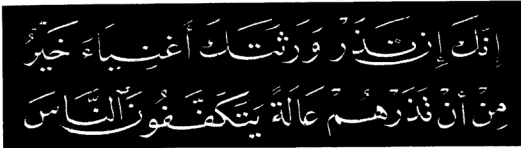 إِنَّكَ إِن تَذَرْ وَرَثَتَكَ أَغْنِيَاءَ خَيْرٌ
مِنْ أَنْ تَذَرَهُمْ عَالَةً يَتَكَفَّفُونَ النَّاسَ